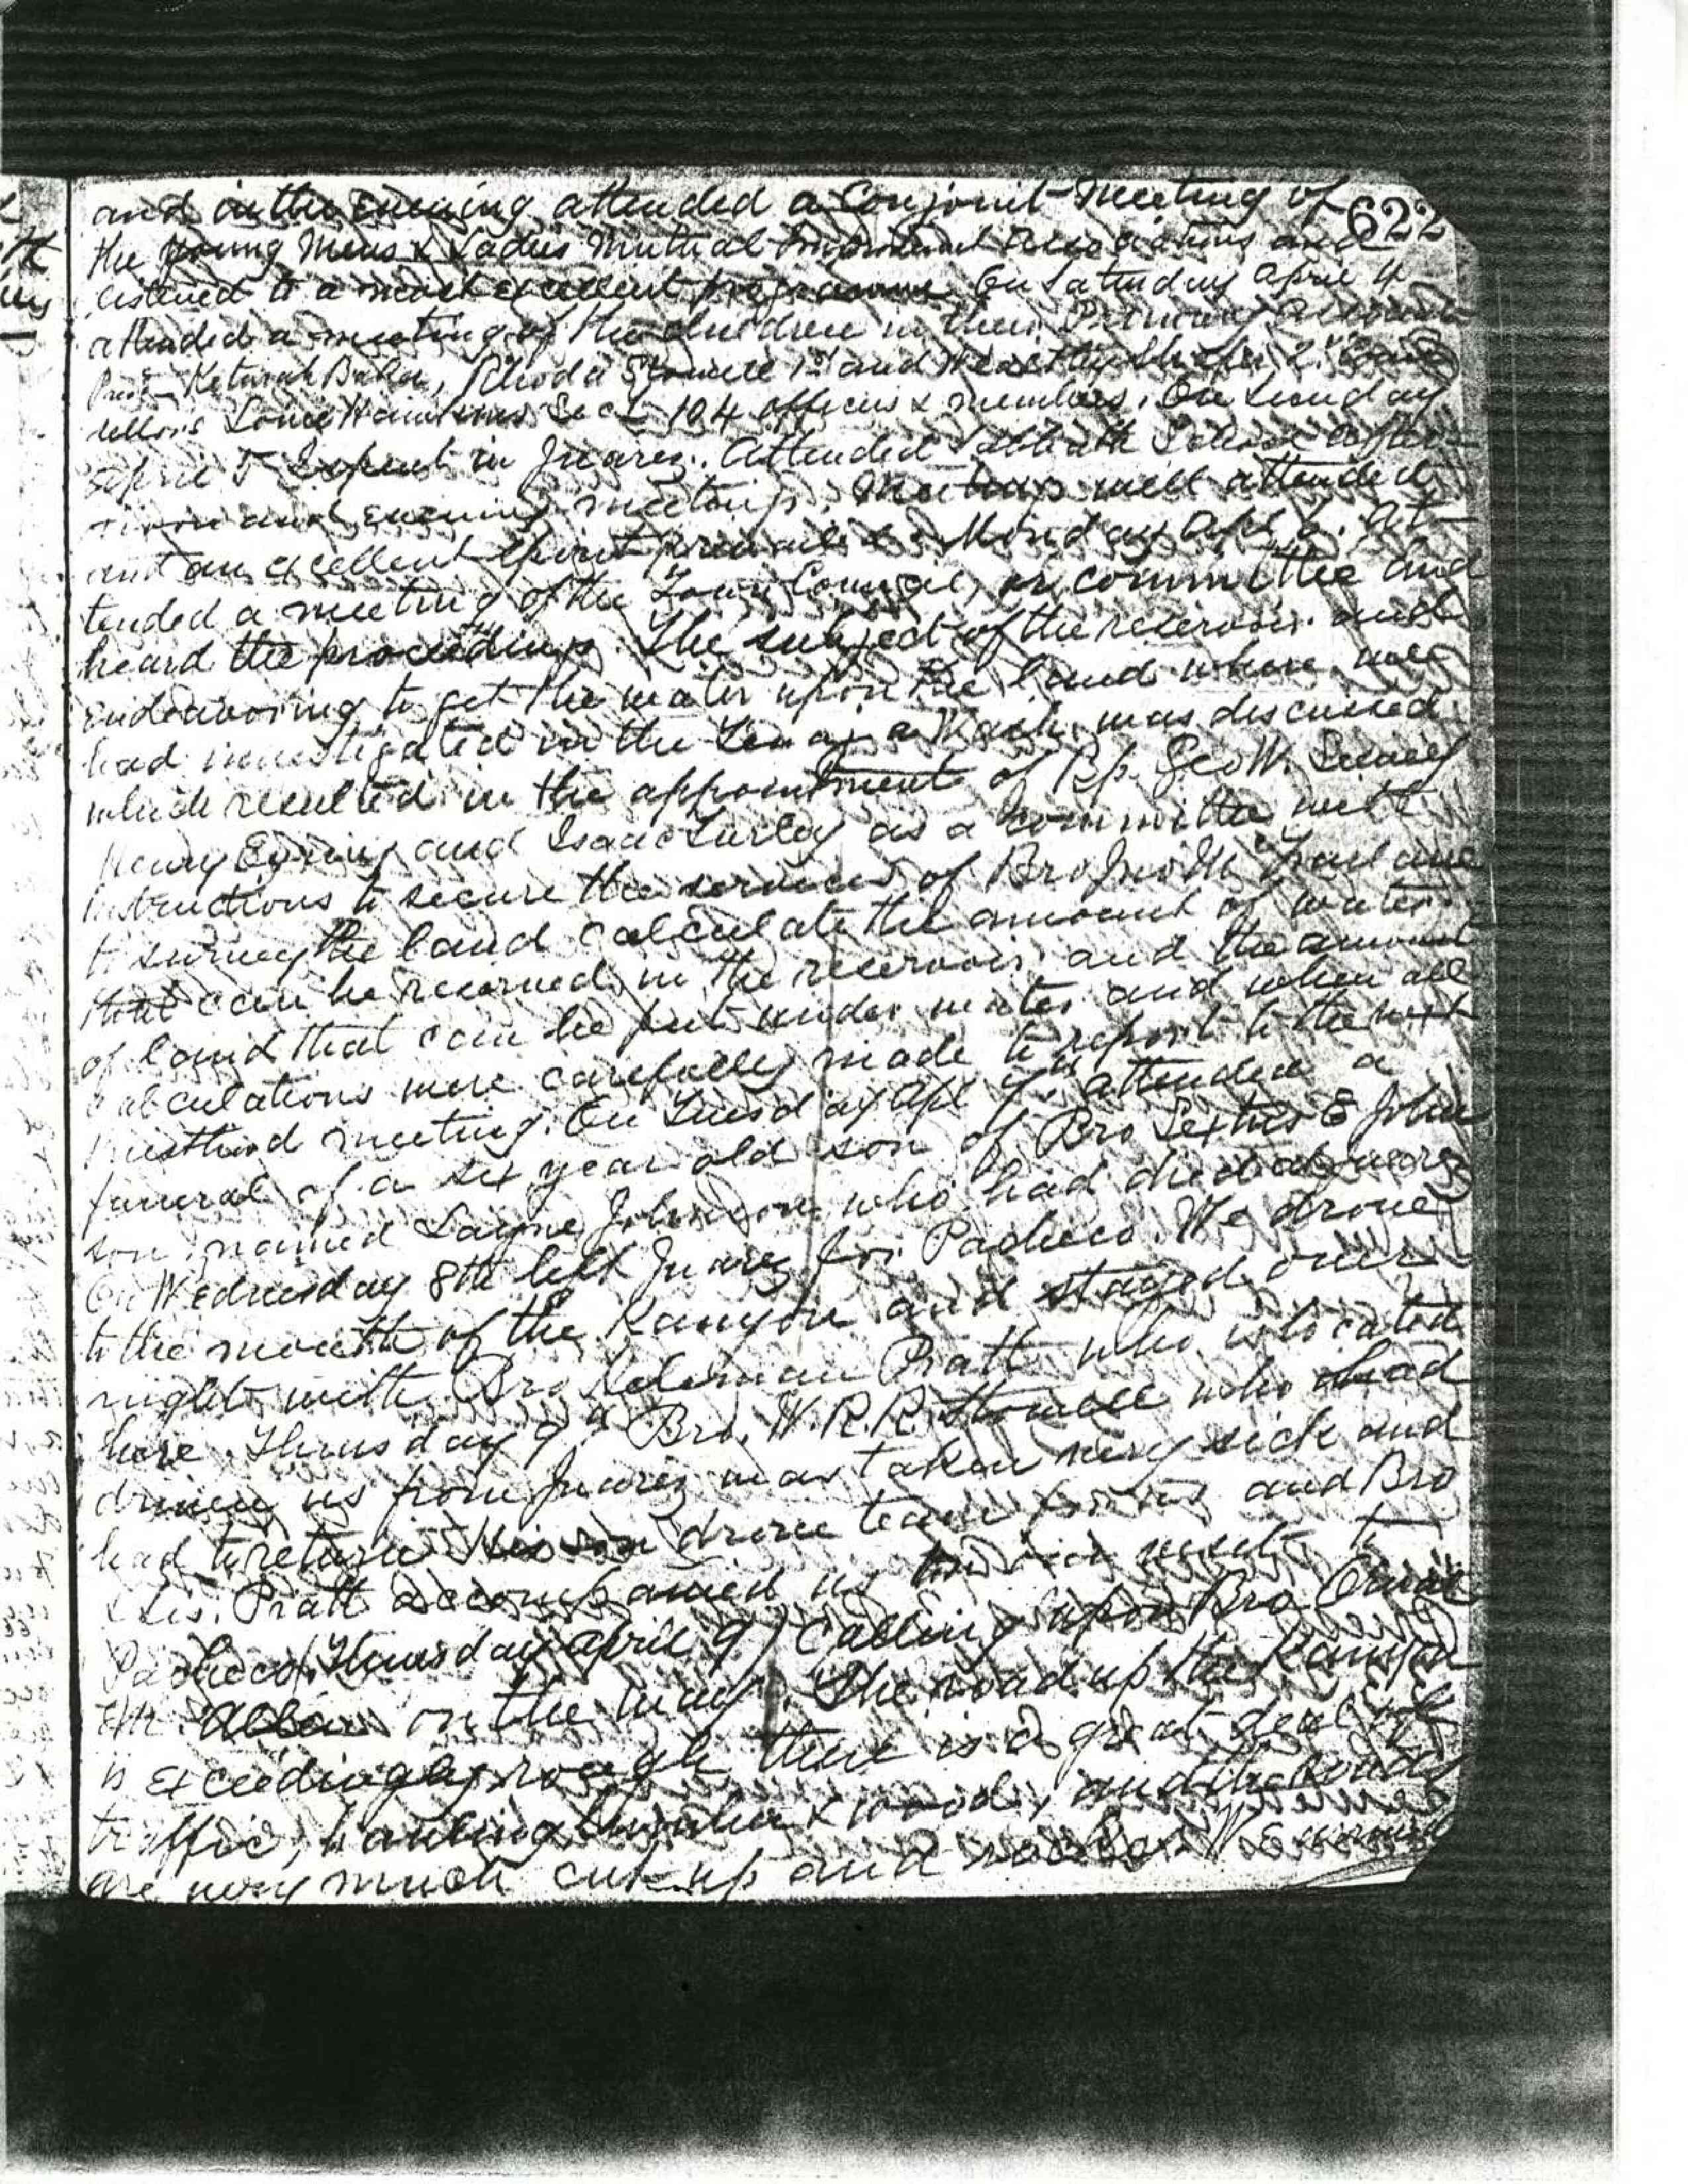 622
and in the Evening attended a Conjoint Meeting of
the Young Mens & Ladies Mutual Improvement Associations and
listened to a most excellent programme On Saturday April 4
attended a meeting of the children in their Primary
Prest Keturah Baker, Rhoda Stowell 1st and 2nd Coun
sellors Sect 104 officers & members. On Sunday
April 5 Spent in Juarez. Attended Sabbath School after
noon and evening meetings. Meetings well attended
and an excellent spirit prevailed. Monday Apl 6. At
tended a meeting of the Town Council, or committee and
heard the proceedings. The subject of the reservoir and
endeavoring to get the water upon the land where we
had investigated in the Wash was discussed
which resulted in the appointment of Bp. Geo W. Sevey
Henry Eyring and Isaac Turley as a committee with
instructions to secure the services of Bro
to survey the land calculate the amount of water
that can be reserved in the reservoir and the amount
of land that can be put under water and when all
calculations were carefully made to report to the next
priesthood meeting. On Tuesday Apl 7th attended a
funeral of a six year old son of Bro Sextus E John
son, named Layne Johnson who had died
On Wednesday 8th left Juarez for Pacheco. We drove
to the mouth of the Kanyon and stayed over
night with Bro Helaman Pratt who is located
here. Thursday 9th Bro. W. R. R. Stowell who had
driven us from Juarez was taken very sick and
had to return His son drove team for us and Bro
& Sis. Pratt accompanied us on our visit to
Pacheco (Thursday April 9) Calling upon Bro
on the way. The road up the Kanyon
is exceedingly rough there is a great deal of
traffic, hauling lumber & wood, and the roads
are very much cut up and rocky. We